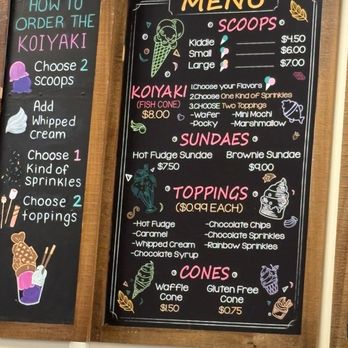 HOW TO
ORDER THE
KOIYAKI
Choose 2
scoops
Add
Whipped
Cream
Choose 1
Kind of
Sprinkles
Choose 2
toppings
MENU
SCOOPS
Kiddie $4.50
Small $6.00
Large $7.00
KOIYAKI
(FISH CONE)
$8.00
1.Choose your Flavors
2.Choose One Kind of Sprinkles
3.CHOOSE Two Toppings
-Wafer -Mini Mochi
-Pocky -Marshmallow
SUNDAES
Hot Fudge Sundae Brownie Sundae
$7.50 $9.00
TOPPINGS
($0.99 EACH)
-Hot Fudge -Chocolate Chips
-Caramel -Chocolate Sprinkles
-Whipped Cream -Rainbow Sprinkles
-Chocolate Syrup
CONES
Waffle Gluten Free
Cone Cone
$1.50 $0.75